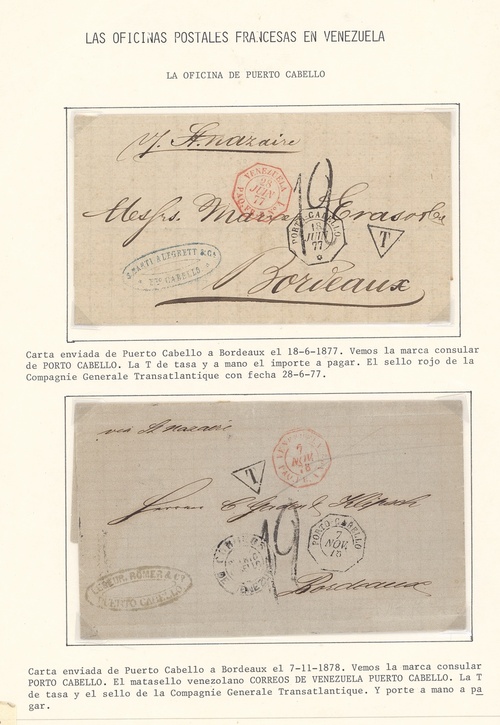 LAS OFICINAS POSTALES FRANCESAS EN VENEZUELA
LA OFICINA DE PUERTO CABELLO
St. Nazaire
VENEZUELA
28
JUIN
77
10
PORTO-CABELLO
18
JUIN
77
T
Bordeaux
Carta enviada de Puerto Cabello a Bordeaux el 18-6-1877. Vemos la marca consular
de PORTO CABELLO. La T de tasa y a mano el importe a pagar. El sello rojo de la
Compagnie Generale Transatlantique con fecha 28-6-77.
via St. Nazaire
VENEZUELA
7
NOV
78
T
10
PORTO-CABELLO
7
NOV.
78
PUERTO CABELLO
Bordeaux
Carta enviada de Puerto Cabello a Bordeaux el 7-11-1878. Vemos la marca consular
PORTO CABELLO. El matasello venezolano CORREOS DE VENEZUELA PUERTO CABELLO. La T
de tasa y el sello de la Compagnie Generale Transatlantique. Y porte a mano a pa
gar.